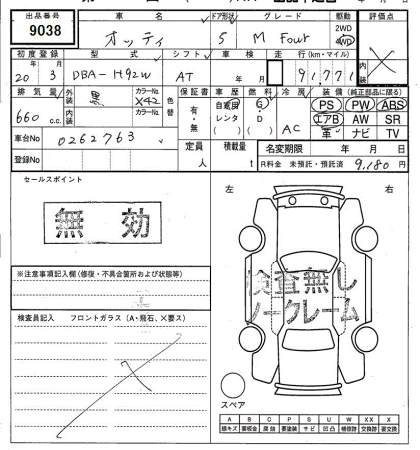 出品番号 車名 ドア形状 グレード 駆動 評価点
9038 オッティ 5 M Four 2WD 4WD
初度登録 型式 シフト 車検 走行(km・マイル) 内装
20年 3月 DBA-H92W AT 年 月 91,771
排気量 外装 カラーNo. 色替 保証書 車歴 燃料 冷房 装備(純正部品に限る)
660 c.c. X42 有・無 自家用 G・D AC PS PW ABS
内装 カラーNo. レンタ エアB AW SR
( ) ( ) 革 ナビ TV
車台No 0262763 定員 人 積載量 t 名変期限 年 月 日
登録No R料金 未預託・預託済 9,180円
セールスポイント 左 右
無効
検査無し
ノークレーム
※注意事項記入欄(修復・不具合箇所および状態等)
検査員記入 フロントガラス(A・飛石、X要ス)
スペア
A B C P S U W XX X
線キズ 要板金 腐蝕 要塗装 サビ 凹凸 補修跡 交換跡 要交換